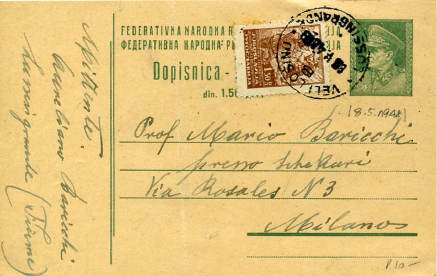 FEDERATIVNA NARODNA R
ФЕДЕРАТИВНА НАРОДНА РЕ
Dopisnica -
din. 1.50
VELI LOŠINJ
LUSSINGRANDE
(8.5.1948)
Prof Mario Baricchi
presso
Via Rosales N 3
Milano
Mittente:
Baricchi
Lussingrande (Fiume)